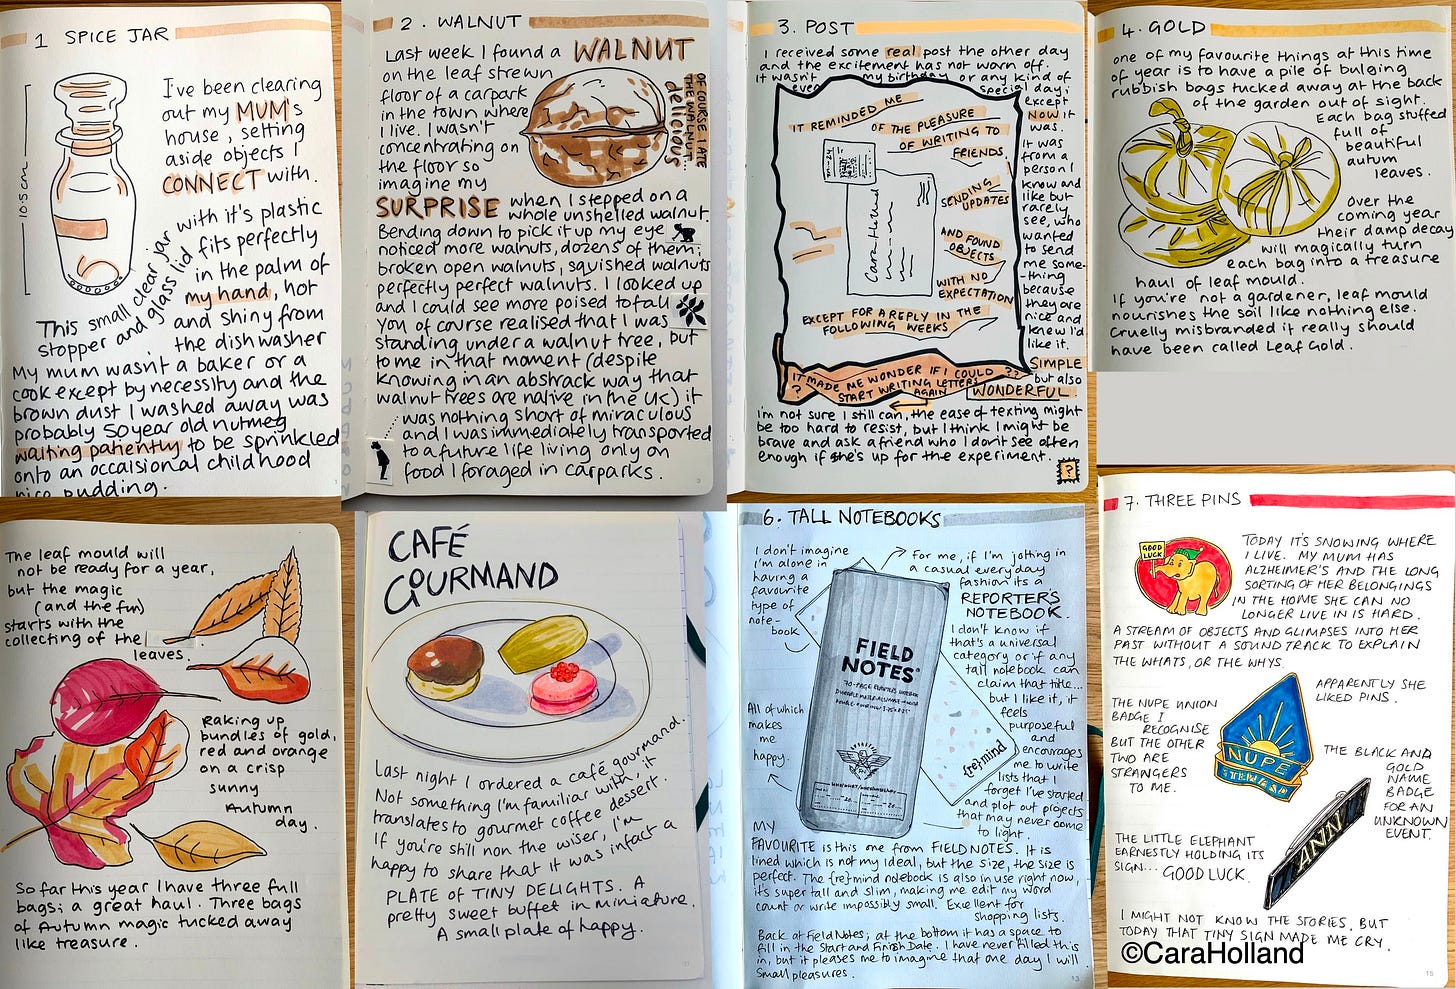 1 SPICE JAR
10.5cm
I've been clearing
out my MUM's
house, setting
aside objects I
CONNECT with.
This small clear jar with it's plastic
stopper and glass lid fits perfectly
in the palm of
my hand, hot
and shiny from
the dishwasher
My mum wasn't a baker or a
cook except by necessity and the
brown dust I washed away was
probably 50 year old nutmeg
waiting patiently to be sprinkled
onto an occaisional childhood
rice pudding.
2. WALNUT
Last week I found a WALNUT
on the leaf strewn
floor of a carpark
in the town where
I live. I wasn't
concentrating on
the floor so
imagine my
SURPRISE when I stepped on a
whole unshelled walnut.
Bending down to pick it up my eye
noticed more walnuts, dozens of them;
broken open walnuts, squished walnuts
perfectly perfect walnuts. I looked up
and I could see more poised to fall
You of course realised that I was
standing under a walnut tree, but
to me in that moment (despite
knowing in an abstrack way that
walnut trees are native in the UK) it
was nothing short of miraculous
and I was immediately transported
to a future life living only on
food I foraged in carparks.
OF COURSE I ATE
THE WALNUT
delicious
3. POST
I received some real post the other day
and the excitement has not worn off.
It wasn't my birthday or any kind of
even special day;
except
NOW it
was.
It was
from a
person I
know and
like but
rarely
see, who
wanted
to send
me some-
-thing
because
they are
nice and
knew I'd
like it.
SIMPLE
but also
WONDERFUL
IT REMINDED ME
OF THE PLEASURE
OF WRITING TO
FRIENDS
SENDING
UPDATES
AND FOUND
OBJECTS
WITH NO
EXPECTATION
EXCEPT FOR A REPLY IN THE
FOLLOWING WEEKS
Cara Holland
IT MADE ME WONDER IF I COULD ??
? START WRITING LETTERS
AGAIN
I'm not sure I still can, the ease of texting might
be too hard to resist, but I think I might be
brave and ask a friend who I don't see often
enough if she's up for the experiment.
?
4. GOLD
one of my favourite things at this time
of year is to have a pile of bulging
rubbish bags tucked away at the back
of the garden out of sight.
Each bag stuffed
full of
beautiful
autum
leaves.
Over the
coming year
their damp decay
will magically turn
each bag into a treasure
haul of leaf mould.
If you're not a gardener, leaf mould
nourishes the soil like nothing else.
Cruelly misbranded it really should
have been called Leaf Gold.
The leaf mould will
not be ready for a year,
but the magic
(and the fun)
starts with the
collecting of the
leaves.
Raking up
bundles of gold,
red and orange
on a crisp
sunny
Autumn
day.
So far this year I have three full
bags; a great haul. Three bags
of Autumn magic tucked away
like treasure.
CAFÉ
GOURMAND
Last night I ordered a café gourmand.
Not something I'm familiar with, it
translates to gourmet coffee dessert.
If you're still non the wiser, I'm
happy to share that it was infact a
PLATE of TINY DELIGHTS. A
pretty sweet buffet in miniature.
A small plate of happy.
6. TALL NOTEBOOKS
I don't imagine
I'm alone in
having a
favourite
type of
note-
book
For me, if I'm jotting in
a casual everyday
fashion its a
REPORTER'S
NOTEBOOK.
I don't know if
that's a universal
category or if any
tall notebook can
claim that title...
but I like it, it
feels
purposeful
and
encourages
me to write
lists that I
forget I've started
and plot out projects
that may never come
to light.
All of which
makes
me
happy.
FIELD
NOTES
{re}mind
MY
FAVOURITE is this one from FIELD NOTES. It is
lined which is not my ideal, but the size, the size is
perfect. The {re}mind notebook is also in use right now,
it's super tall and slim, making me edit my word
count or write impossibly small. Excellent for
shopping lists.
Back at Field Notes; at the bottom it has a space to
fill in the Start and Finish Date. I have never filled this
in, but it pleases me to imagine that one day I will.
Small pleasures.
13
7. THREE PINS
GOOD
LUCK
TODAY IT'S SNOWING WHERE
I LIVE. MY MUM HAS
ALZHEIMER'S AND THE LONG
SORTING OF HER BELONGINGS
IN THE HOME SHE CAN NO
LONGER LIVE IN IS HARD.
A STREAM OF OBJECTS AND GLIMPSES INTO HER
PAST WITHOUT A SOUND TRACK TO EXPLAIN
THE WHATS, OR THE WHYS.
APPARENTLY SHE
LIKED PINS.
THE NUPE UNION
BADGE I
RECOGNISE
BUT THE OTHER
TWO ARE
STRANGERS
TO ME.
NUPE
STEWARD
THE BLACK AND
GOLD
NAME
BADGE
FOR AN
UNKNOWN
EVENT.
ANN
THE LITTLE ELEPHANT
EARNESTLY HOLDING ITS
SIGN... GOOD LUCK.
I MIGHT NOT KNOW THE STORIES, BUT
TODAY THAT TINY SIGN MADE ME CRY.
©CaraHolland
15